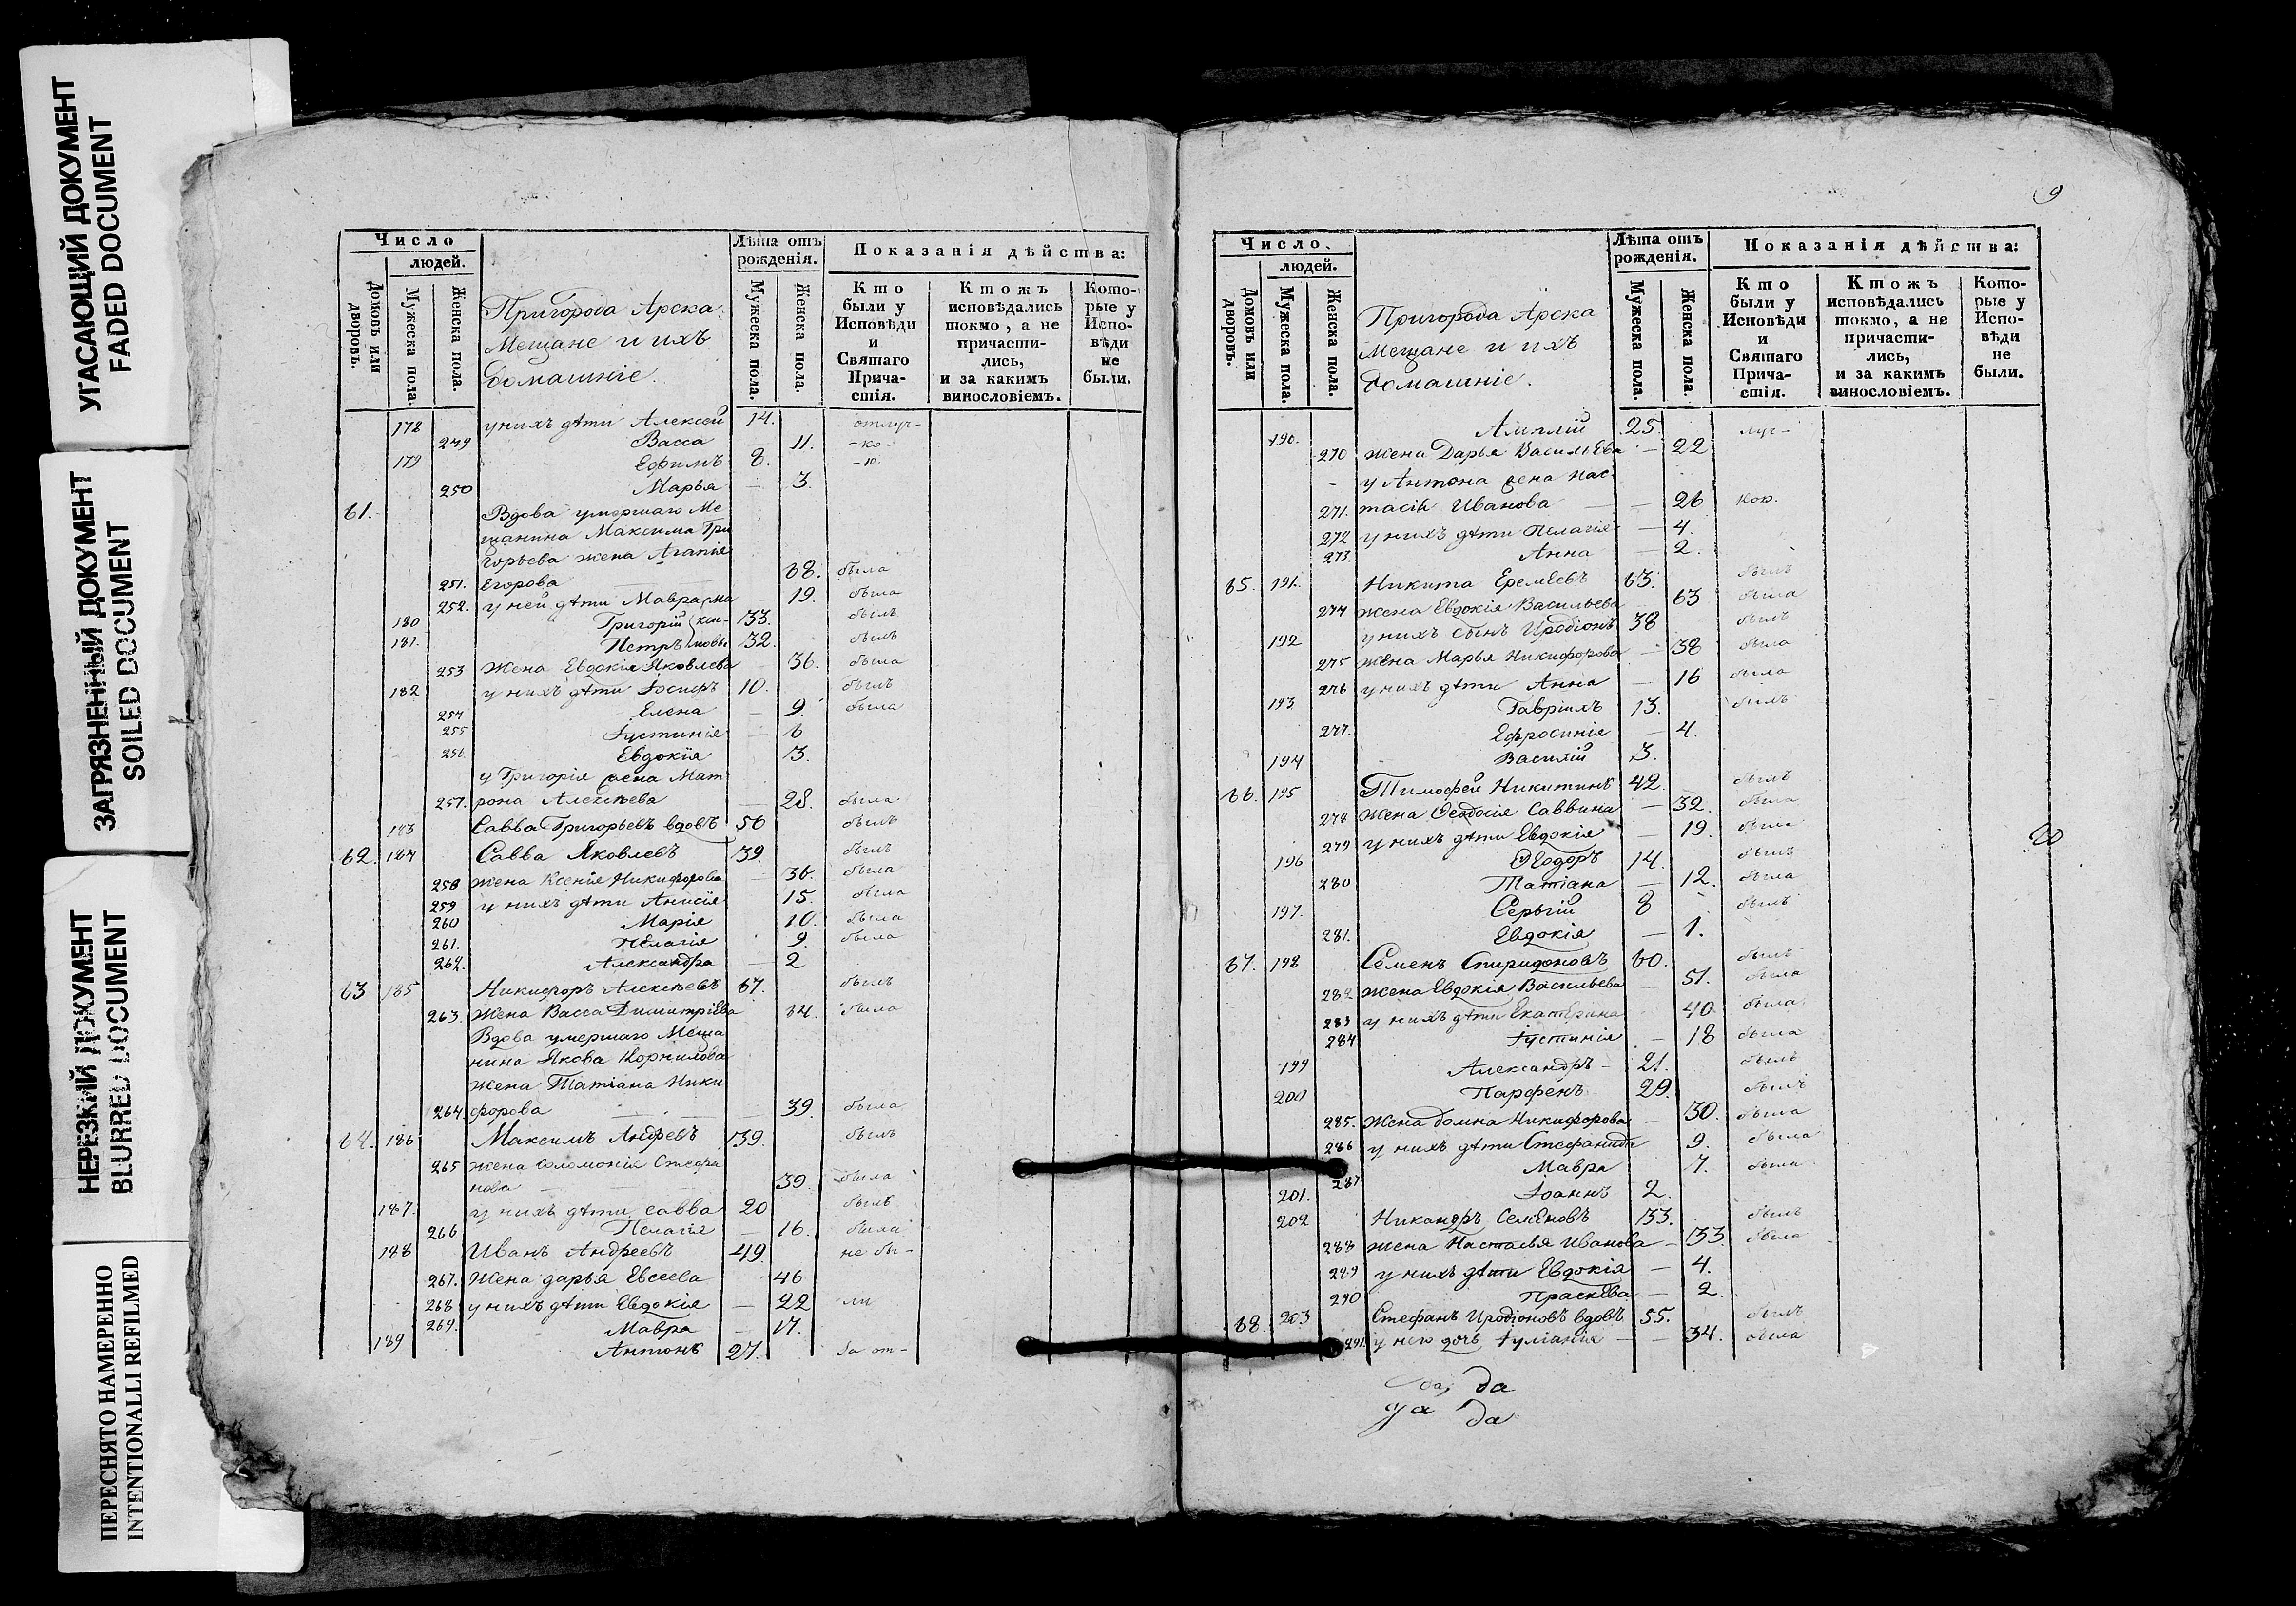 УГАСАЮЩИЙ ДОКУМЕНТ
FADED DOCUMENT
ЗАГРЯЗНЕННЫЙ ДОКУМЕНТ
SOILED DOCUMENT
НЕРЕЗКИЙ ДОКУМЕНТ
BLURRED DOCUMENT
ПЕРЕСНЯТО НАМЕРЕННО
INTENTIONALLI REFILMED
Число
людей.
Домовъ или дворовъ.
Мужеска пола.
Женска пола.
Пригорода Арска
Мещане и ихъ
домашніе.
Лѣта отъ
рожденія.
Мужеска пола.
Женска пола.
Показанія дѣйства:
Кто
были у
Исповѣди
и
Святаго
Прича-
стія.
Ктожъ
исповѣдались
токмо, а не
причасти-
лись,
и за какимъ
винословіемъ.
Кото-
рые у
Испо-
вѣди
не
были.
178 у нихъ дѣти Алексей 14. отлуч-
249 Васса 11. -ко-
179 Ефимъ 8. -ю.
250 Марья — 3.
61. Вдова умершаго Ме
щанина Максима Гри
горьева жена Агапія
251. Егорова 68. была
252. у ней дѣти Мавра 19. была
180 Григорій 33. былъ
181. Петръ 32. былъ
253 Жена Евдокія Яковлева 36. была
182 у нихъ дѣти Іосифъ 10. былъ
254 Елена — 9. была
255 Іустинія — 6
256. Евдокія 3.
у Григорія жена Мат
257. рона Алексѣева — 28. была
183 Савва Григорьевъ вдовъ 56 былъ
62. 184 Савва Яковлевъ 39. былъ
258 жена Ксенія Никифорова — 36. была
259 у нихъ дѣти Анисія 15. была
260 Марія 10. была
261. Пелагія 9. была
262. Александра — 2
63 185 Никифоръ Алексѣевъ 67. былъ
263. Жена Васса Димитріева 64. была
Вдова умершаго Меща
нина Якова Корнилова
жена Татіана Ники
264. форова 39. была
64. 186 Максимъ Андревъ 39. былъ
265 жена Соломонія Стефа
нова 39. была
187. у нихъ дѣти Савва 20 былъ
266 Пелагія — 16. была
188 Иванъ Андреевъ 49. не бы-
267. Жена дарья Евсеева 46
268 у нихъ дѣти Евдокія — 22 ли
269. Мавра — 17.
189 Антонъ 27. за от-
9
Число.
людей.
Домовъ или дворовъ.
Мужеска пола.
Женска пола.
Пригорода Арска
Мещане и ихъ
домашніе.
Лѣта отъ
рожденія.
Мужеска пола.
Женска пола.
Показанія дѣйства:
Кто
были у
Исповѣди
и
Святаго
Прича-
стія.
Ктожъ
исповѣдались
токмо, а не
причасти-
лись,
и за какимъ
винословіемъ.
Кото-
рые у
Испо-
вѣди
не
были.
190. 25. луч-
270 жена Дарья Василіева — 22
у Антона жена Нас-
271. тасія Иванова — 26 кою.
272 у нихъ дѣти Пелагія — 4.
273. Анна — 2.
65. 191. Никита Еремѣевъ 63. былъ
274 жена Евдокія Васильева 63 была
192 у нихъ сынъ Иродіонъ 38 былъ
275 жена Марья Никифорова — 38 была
276 у нихъ дѣти Анна — 16 была
193 Гавріилъ 13. былъ
277. Ефросинія — 4.
194 Василій 3.
66. 195 Тимофей Никитинъ 42. былъ
278 жена Ѳеодосія Саввина — 32. была
279 у нихъ дѣти Евдокія — 19. была
20
196 Ѳеодоръ 14. былъ
280 Татіана — 12. была
197. Сергій 8 былъ
281. Евдокія — 1.
67. 198 Семенъ Спиридоновъ 60. былъ
282 жена Евдокія Васильева — 51. была
283 у нихъ дѣти Екатерина 40 была
284 Іустинія — 18 была
199 Александръ 21. былъ
200 Парфенъ 29. былъ
285. Жена домна Никифорова — 30. была
286 у нихъ дѣти Стефанида 9. была
287 Мавра 7. была
201. Іоаннъ 2.
202 Никандръ Семеновъ 33. былъ
288 жена Настасья Иванова — 33 была
289 у нихъ дѣти Евдокія — 4.
290 Праскева — 2.
68. 203 Стефанъ Иродіоновъ вдовъ 55. былъ
291. у него дочь Іуліанія — 34. была
да
да